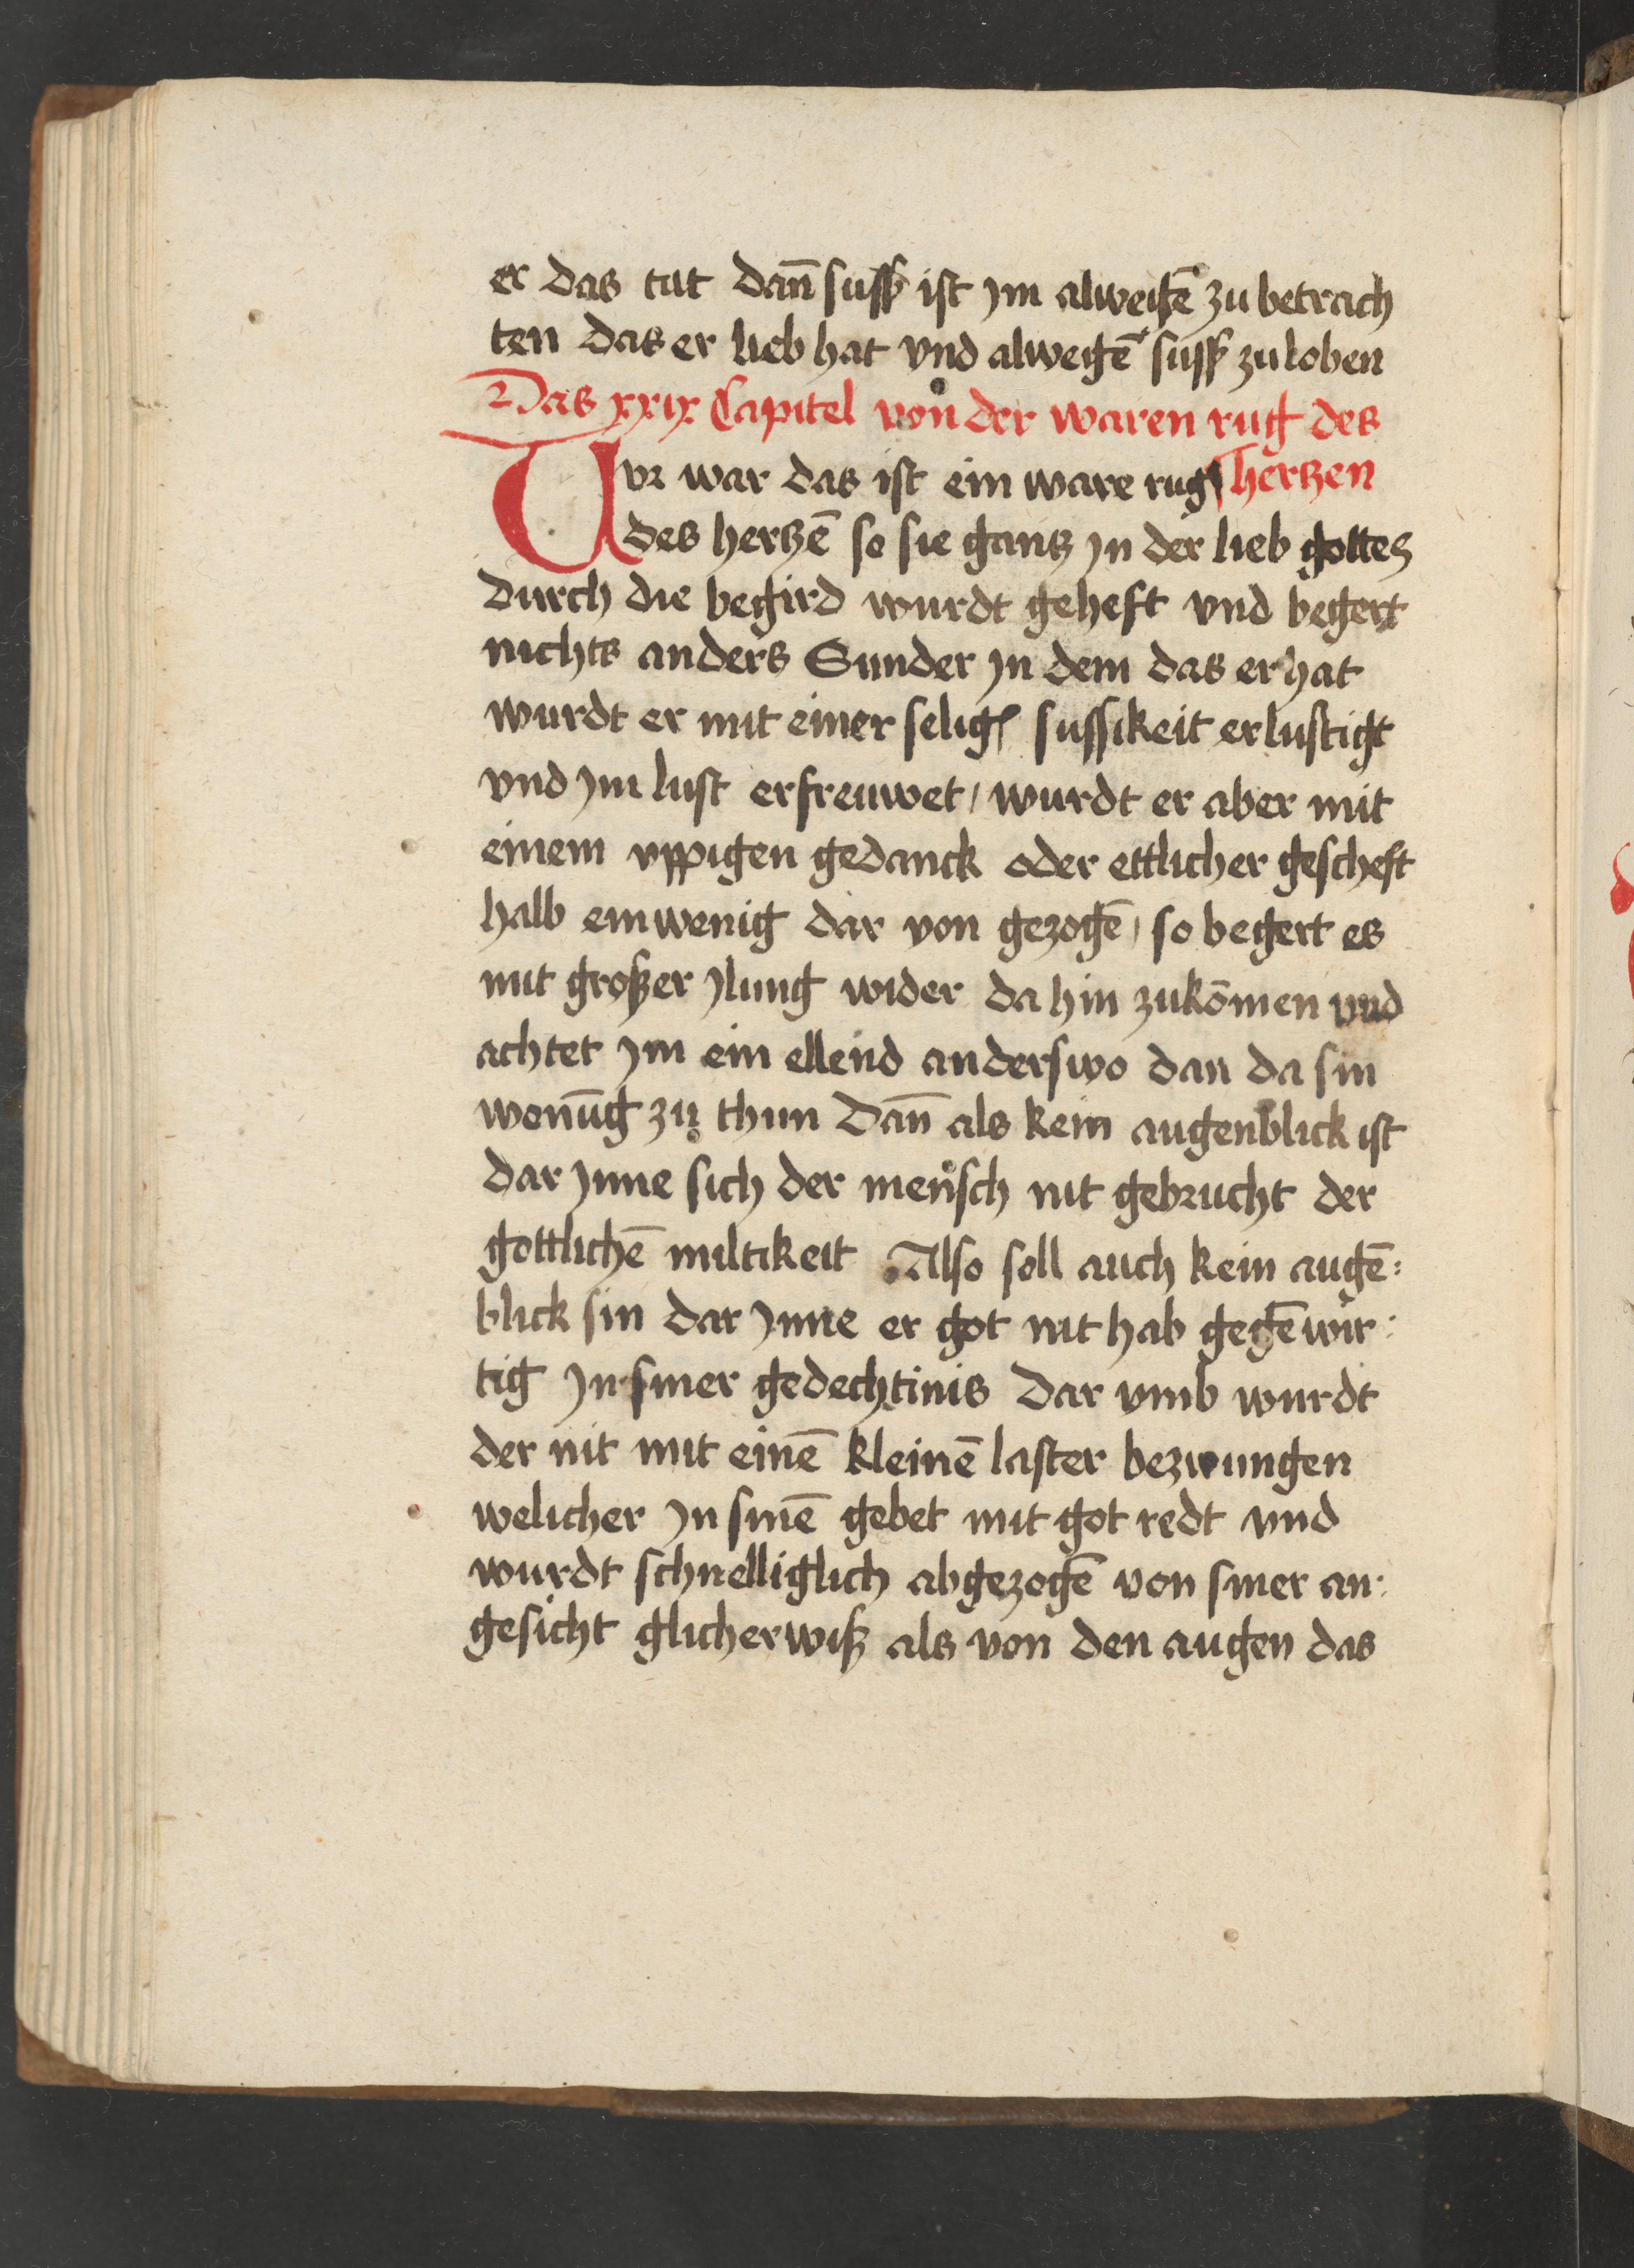 er das tut dañ suſſ iſt jm alwegē zu betrach
ten das er lieb hat vnd alwegē ſuſſ zu loben
Das xxix Capitel von der waren rug des
Vr war das iſt ein ware rug hertzen
des hertzē ſo ſie gantz jn der lieb gottes
durch die begird wurdt geheft vnd begert
nichts anders Sunder jn dem das er hat
wurdt er mit einer ſelig ſuſſikeit erluſtigt
vnd jm luſt erfreuwet / wurdt er aber mit
einem vppigen gedanck oder ettlicher gescheft
halb ein wenig dar von gezogē / ſo begert es
mit großer jlung wider da hin zu kōmen vnd
achtet jm ein ellend anderſwo dan da ſin
wonūg zů thun Dañ als kein augenblick iſt
dar jnne ſich der menſch nit gebrucht der
gottlichē miltikeit Alſo ſoll auch kein augē=
blick ſin dar jnne er got nit hab gegēwir=
tig jn ſiner gedechtinis Dar vmb wurdt
der nit mit einē kleinē laſter bezwungen
welicher jn ſinē gebet mit got redt vnd
wurdt ſchnelliglich abgezogē von ſiner an=
geſicht glicherwiß als von den augen das